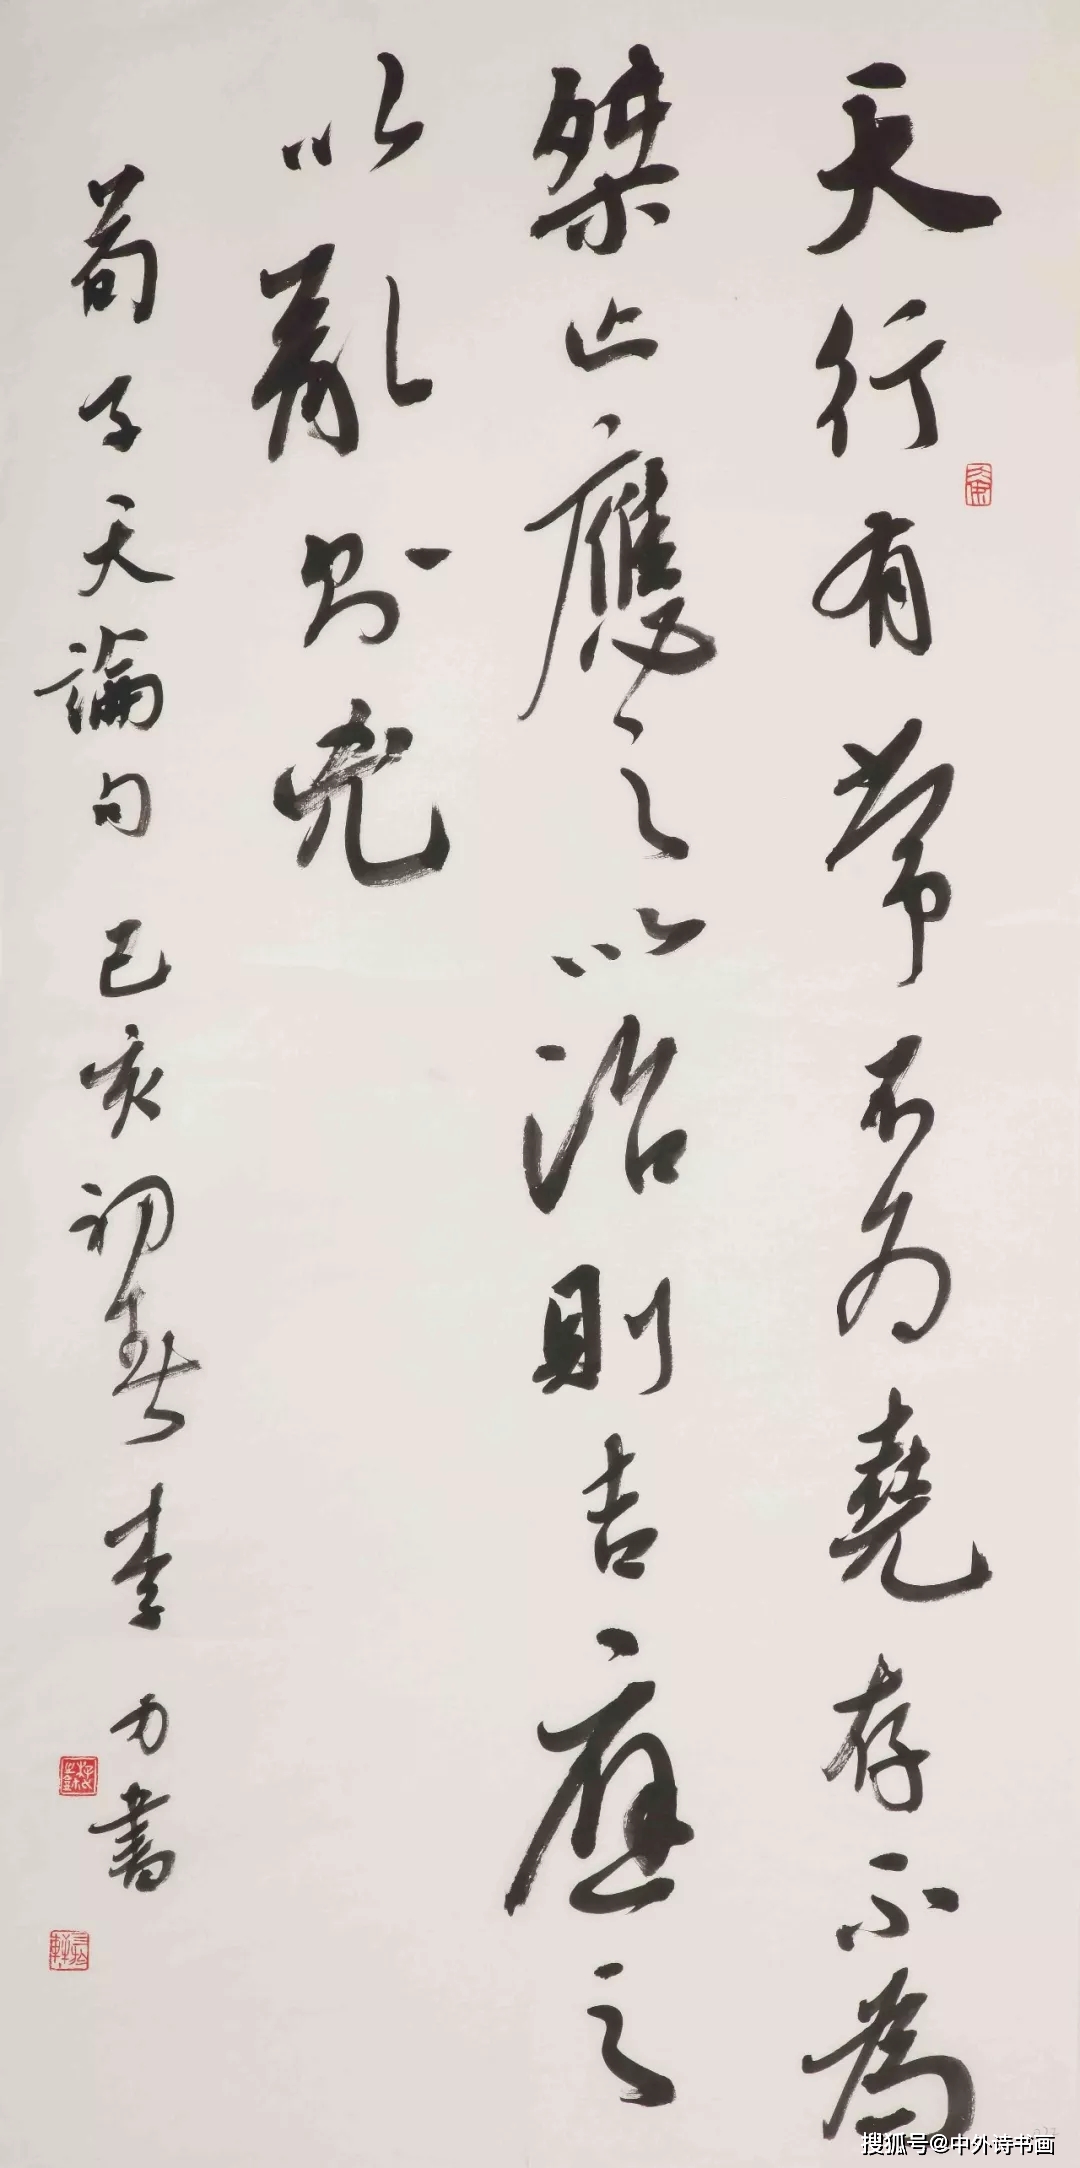 天行有常不為堯存不為
桀亡應之以治則吉應之
以亂則兇
荀子天論句己亥初春李力書
搜狐号@中外诗书画